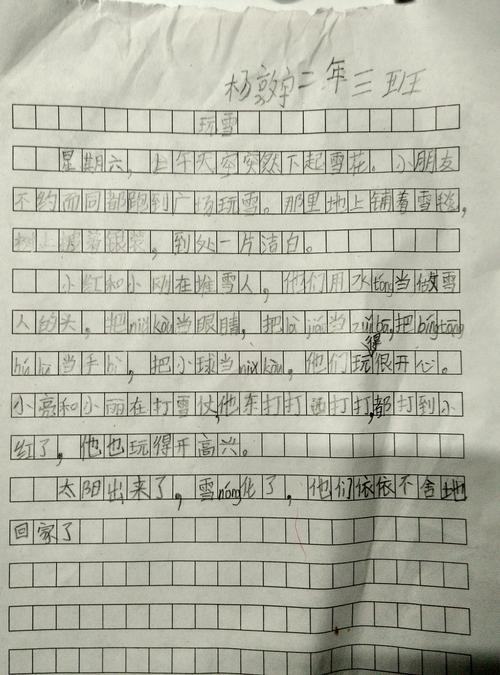 杨敦宇二年三班
玩雪
星期六，上午天空突然下起雪花。小朋友
不约而同都跑到广场玩雪。那里地上铺着雪毯，
树上披着银装，到处一片洁白。
小红和小刚在堆雪人，他们用水tǒng当做雪
人的头，把niǔ kòu当眼睛，把là jiāo当zuǐ ba，把bīngtáng
hú lu当手bì，把小球当niǔ kòu。他们玩得很开心。
小亮和小丽在打雪仗，他东打打西打打，都打到小
红了，他也玩得开高兴。
太阳出来了，雪róng化了，他们依依不舍地
回家了